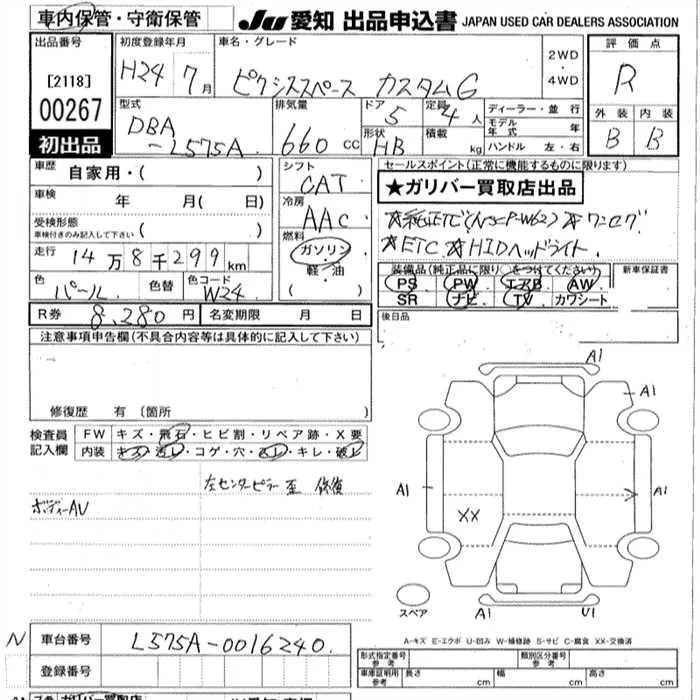 車内保管・守衛保管
JU 愛知 出品申込書 JAPAN USED CAR DEALERS ASSOCIATION
出品番号
[2118]
00267
初出品
初度登録年月
H24 7月
車名・グレード
ピクシススペース カスタムG
2WD
・
4WD
評価点
R
外装 内装
B B
型式
DBA
-L575A
排気量
660 CC
ドア
5
形状
HB
定員
4人
積載
kg
ディーラー・並行
モデル年式 年
ハンドル 左・右
車歴
自家用・( )
車検
年 月( 日)
受検形態
車検付きのみ記入して下さい ( )
走行 14万8千299km
色
パール
色替
色コード
W24
シフト
CAT
冷房
AAC
燃料
ガソリン
軽・油
( )
R券 8,280円 名変期限 月 日
セールスポイント(正常に機能するものに限ります)
★ガリバー買取店出品
★純正ETC(NSCP-W62) ★ワンセグ
★ETC ★HIDヘッドライト
装備品(純正品に限り○をつけてください)
PS PW エアB AW
SR ナビ TV カワシート
新車保証書
後日品
注意事項申告欄(不具合内容等は具体的に記入して下さい)
修復歴 有 〔箇所 〕
検査員記入欄
FW キズ・飛石・ヒビ割・リペア跡・X要
内装 キズ・汚レ・コゲ・穴・スレ・キレ・破レ
左センターピラー 歪 修復
ボディーAU
A1
A1
A1
A1
XX
スペア
A1
U1
A-キズ E-エクボ U-凹み W-補修跡 S-サビ C-腐食 XX-交換済
N
車台番号 L575A-0016240
登録番号
形式指定番号 参考
類別区分番号 参考
車庫証明用 参考 長さ cm 幅 cm 高さ cm
ガリバー買取店